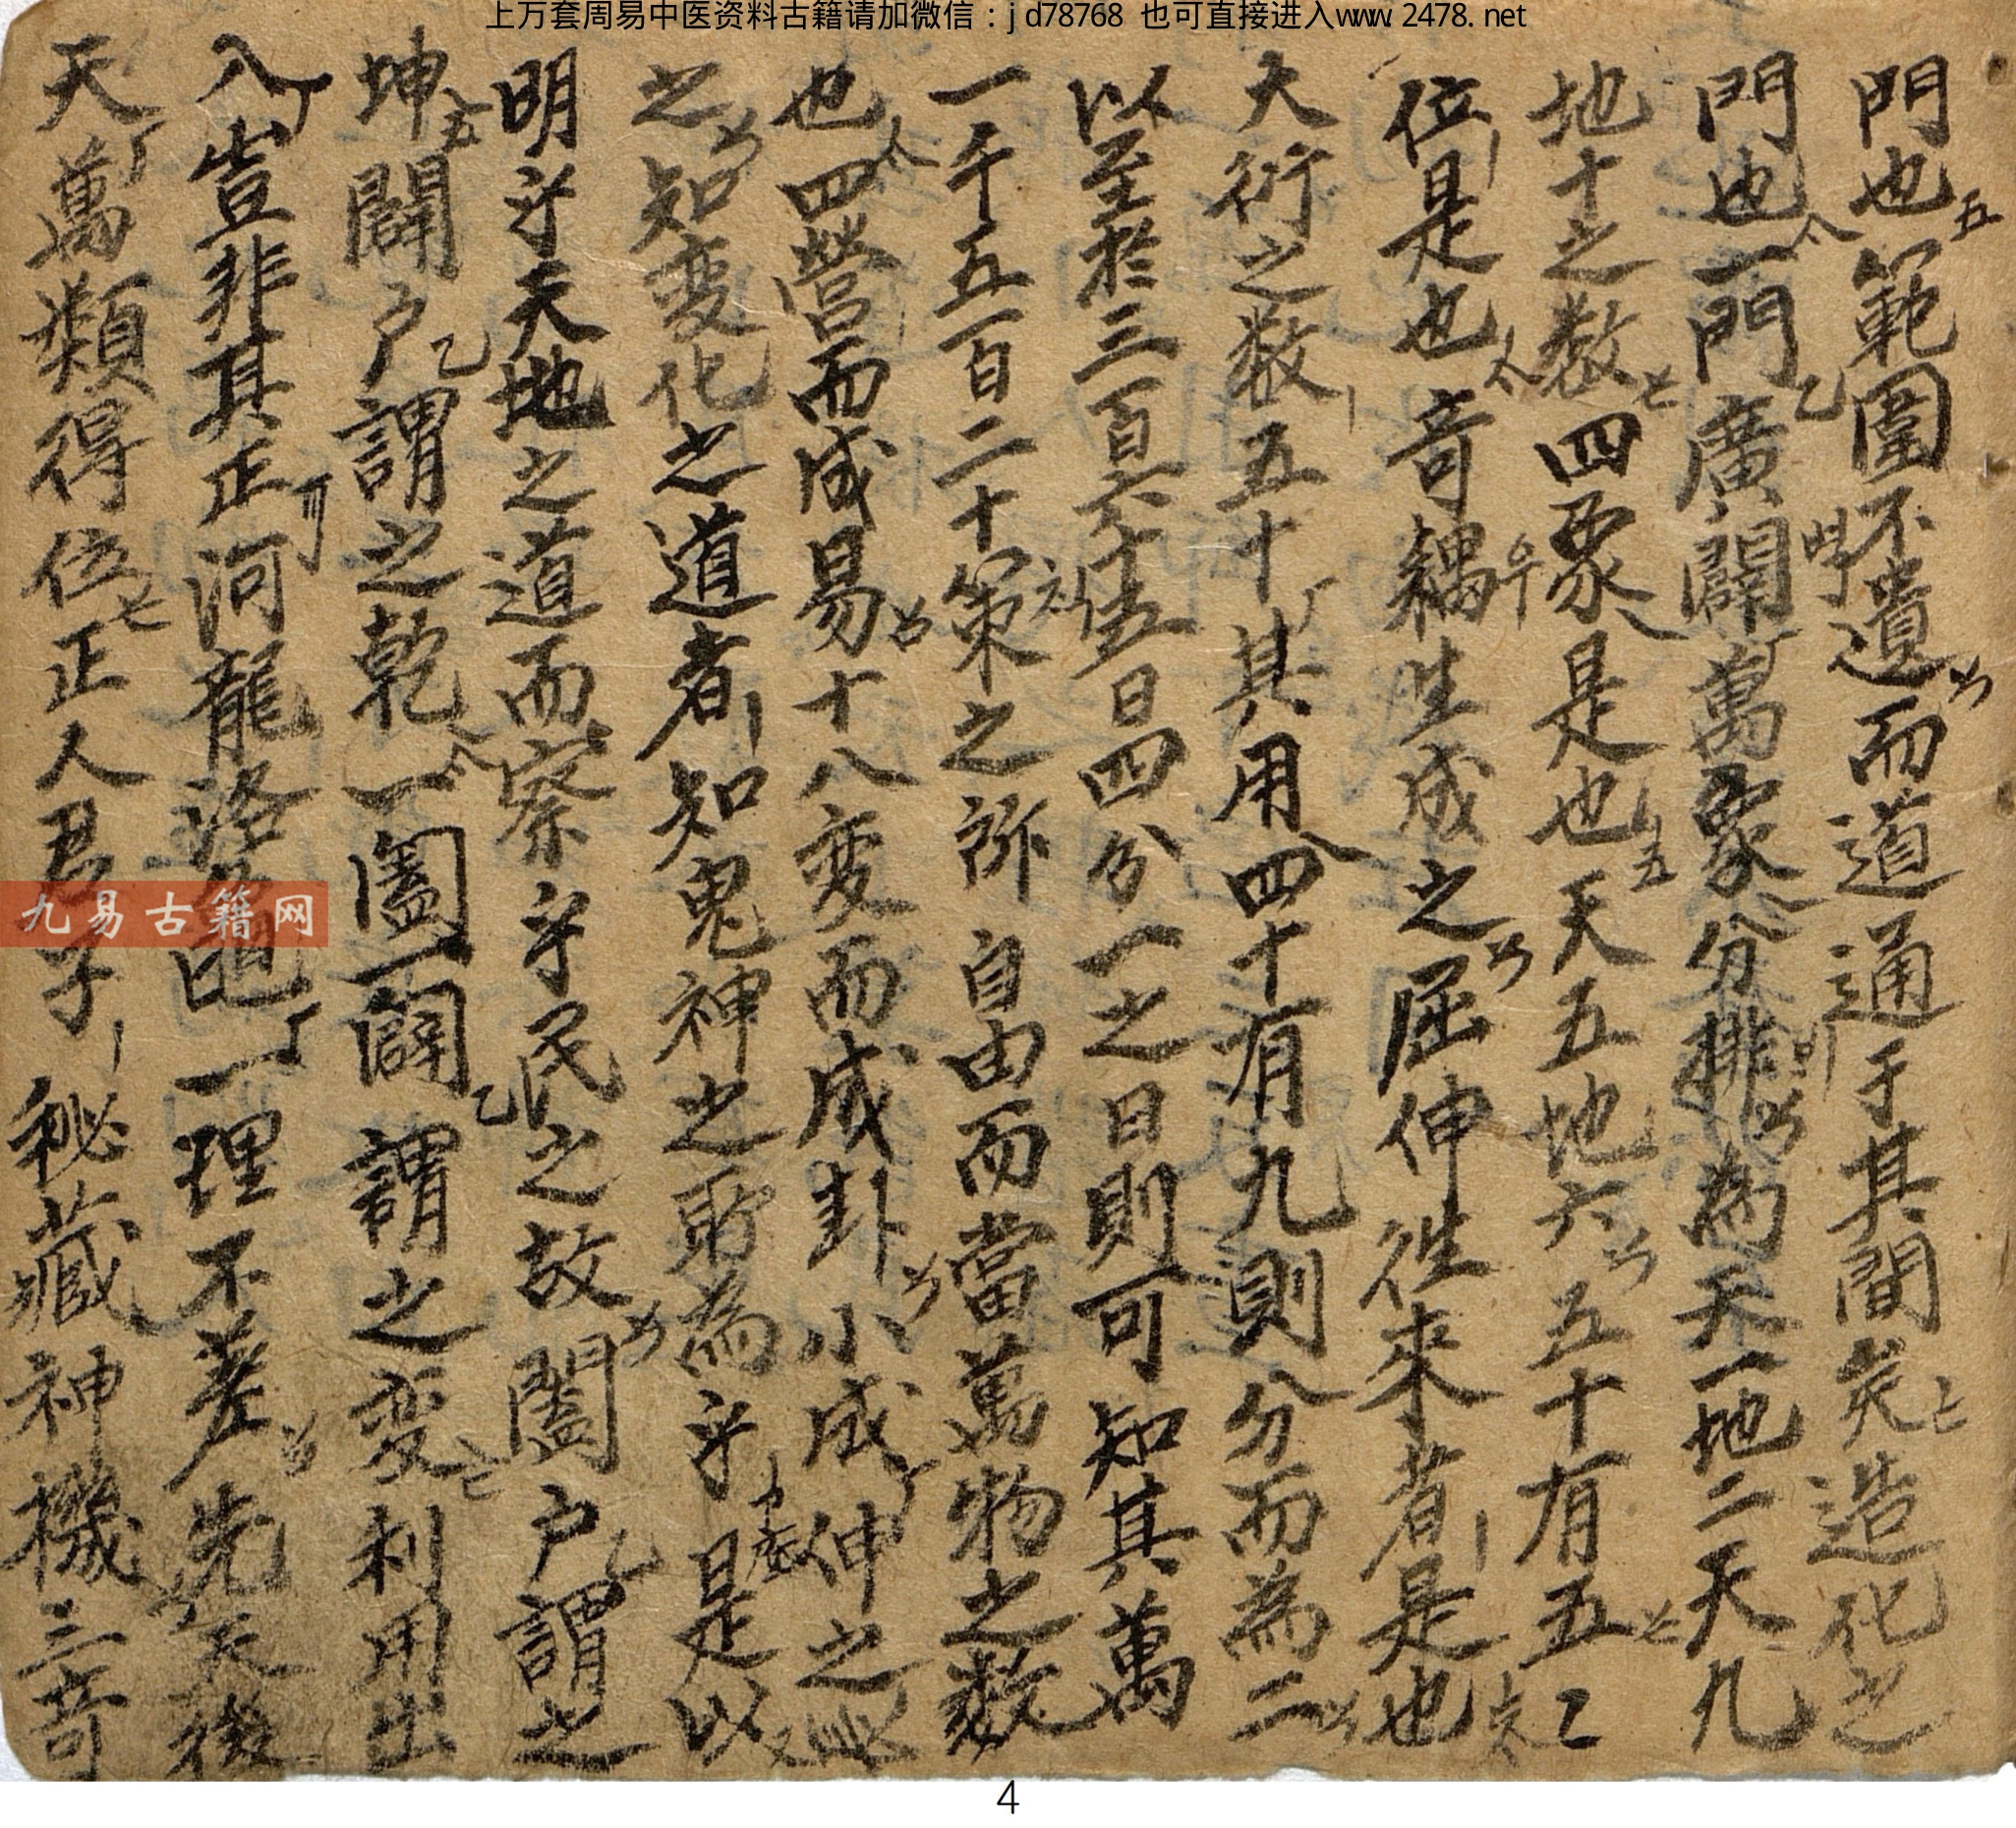 上万套周易中医资料古籍请加微信：jd78768 也可直接进入www.2478.net
門也五範圍不遺而道通于其間矣造化之
門也一門乙廣闢萬象分排為天一地二天九
地十之数四象是也五天五地六五十有五
位是也奇耦生成之屈伸徃來者是也
大衍之数五十其用四十有九則分而為二
以至於三百六十五日四分一之日則可知其萬
一千五百二十策之所自由而當萬物之数
也四營而成易十八変而成卦小成伸之
之知変化之道者知鬼神之所為乎是以
明乎天地之道而察乎民之故闔户謂之
坤闢户謂之乾一闔一闢謂之変利用出
入豈非其正河龍洛龜一理不差先天後
天萬類得位正人君子秘藏神機三奇
九易古籍网
4